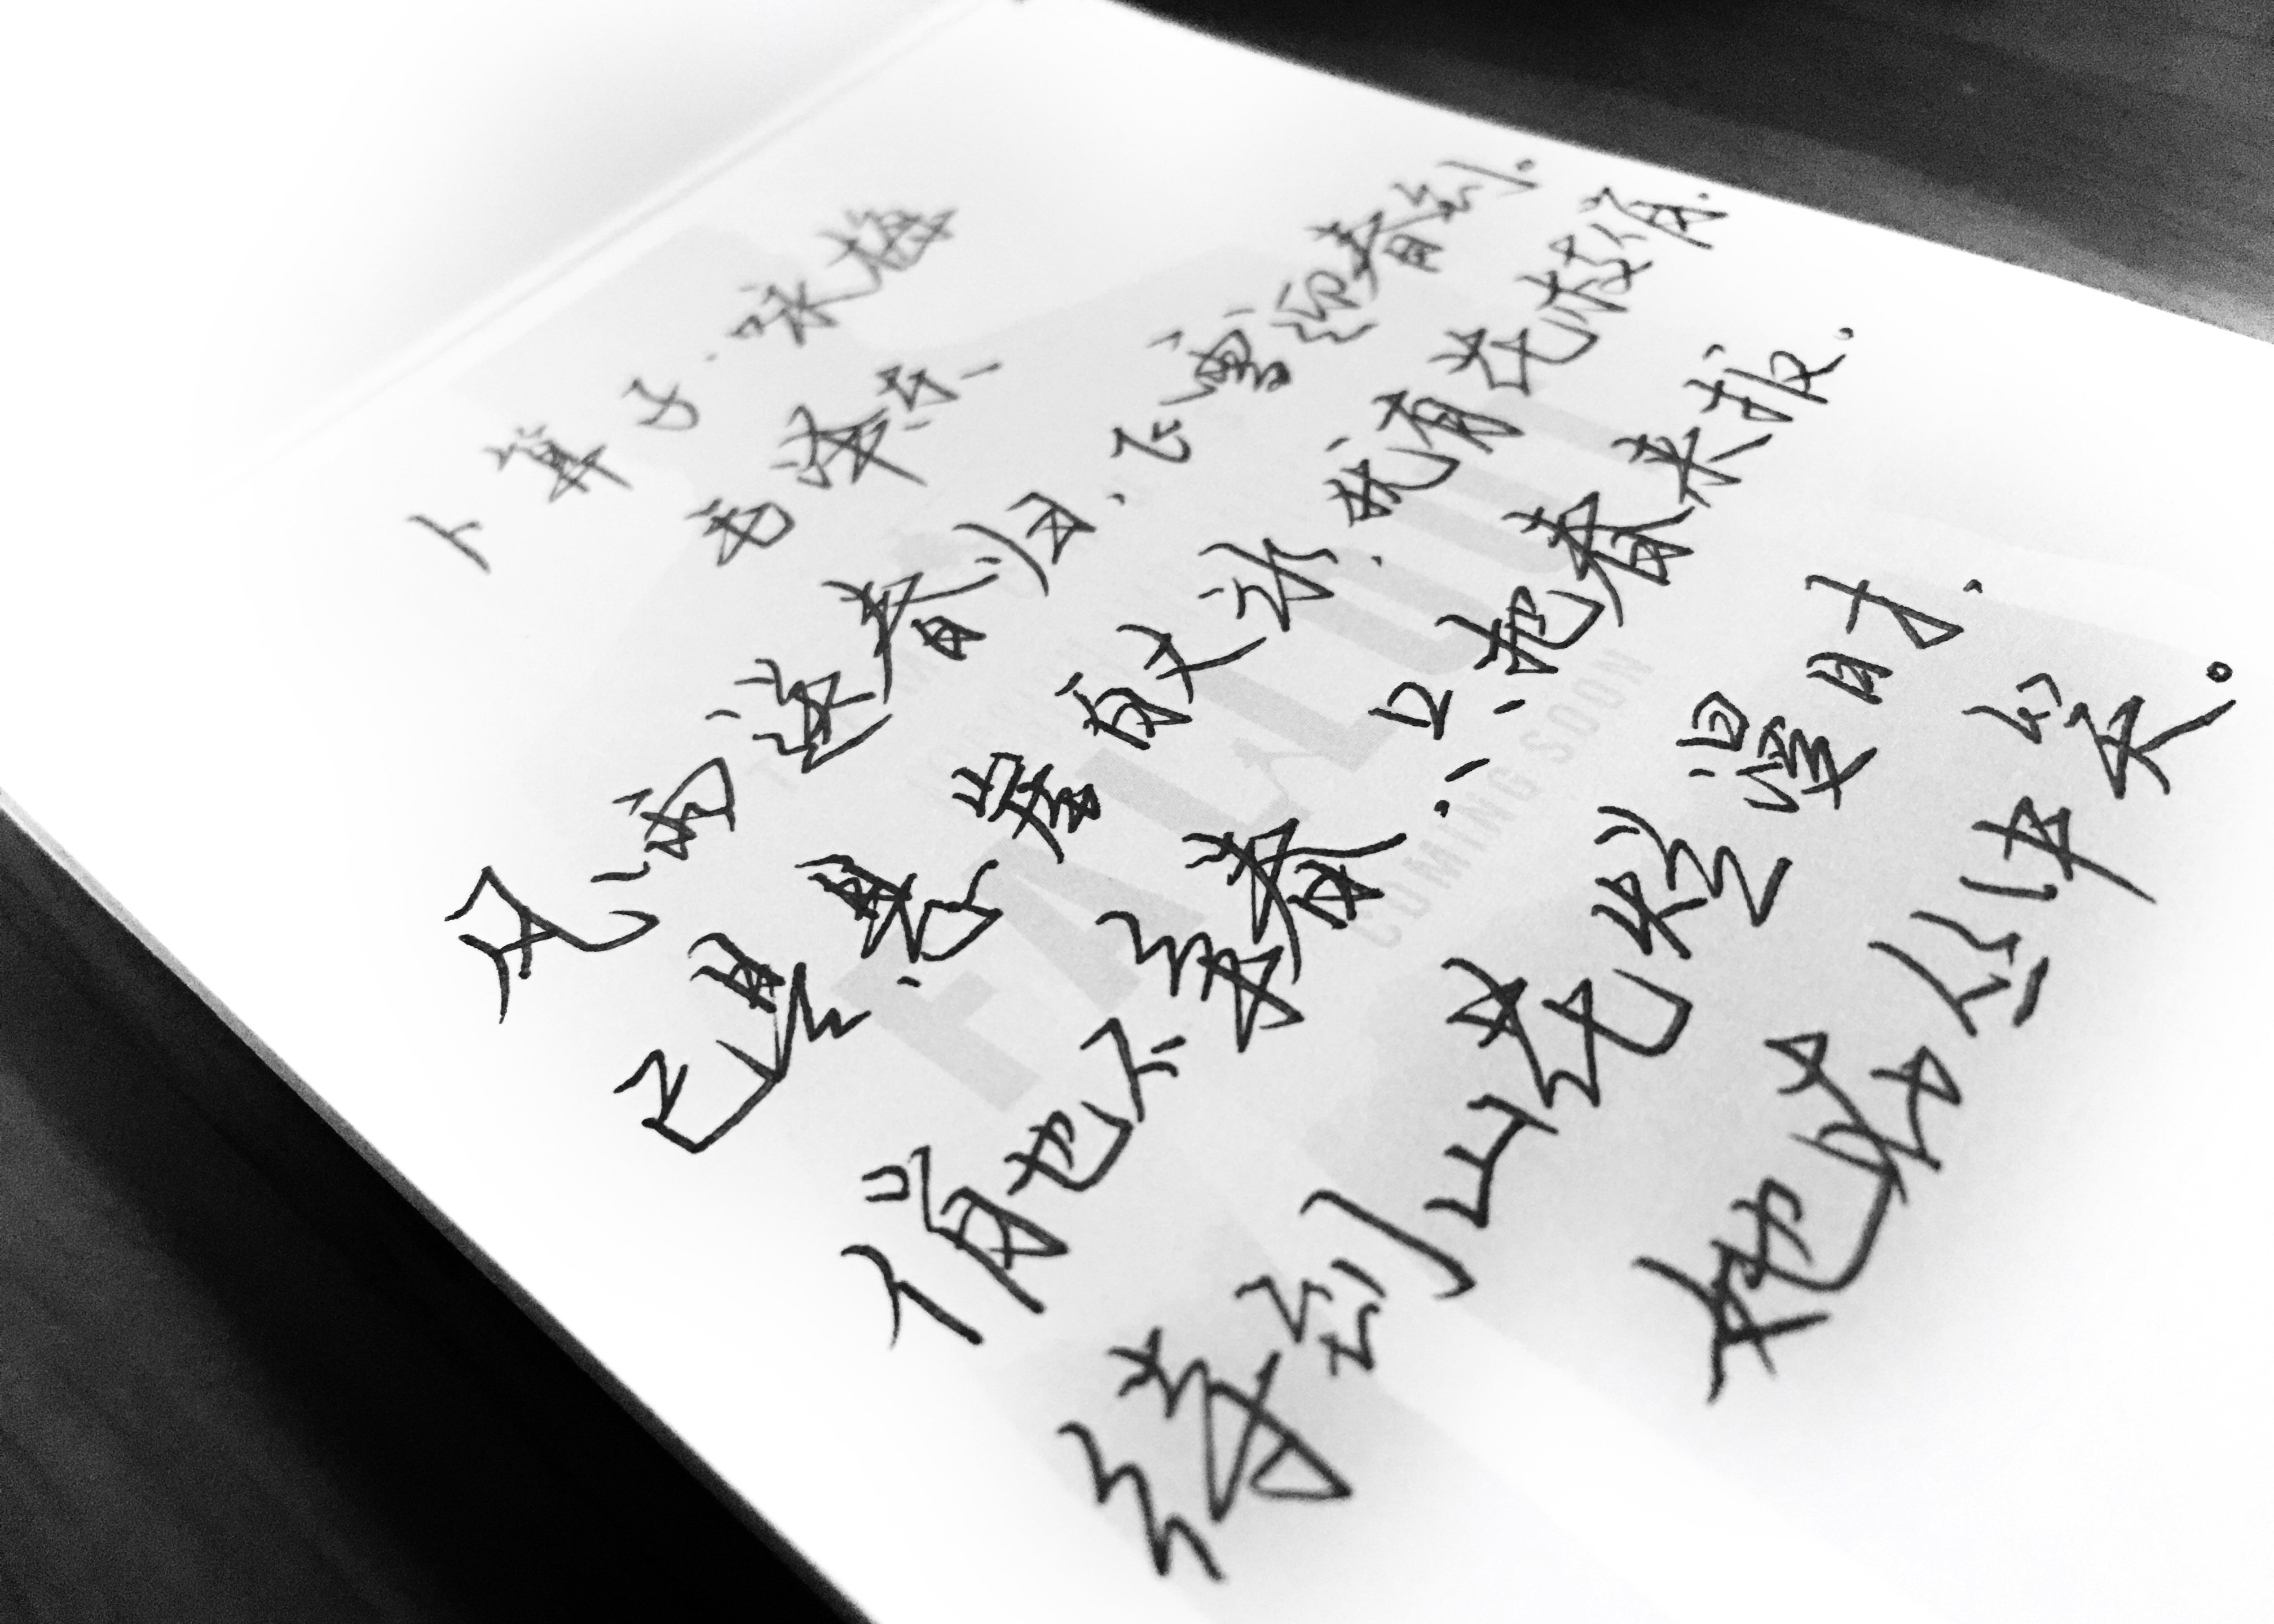 卜算子·咏梅
毛泽东
风雨送春归,飞雪迎春到.
已是悬崖百丈冰,犹有花枝俏.
俏也不争春,只把春来报.
待到山花烂漫时,
她在丛中笑。
FALLOUT
COMING SOON